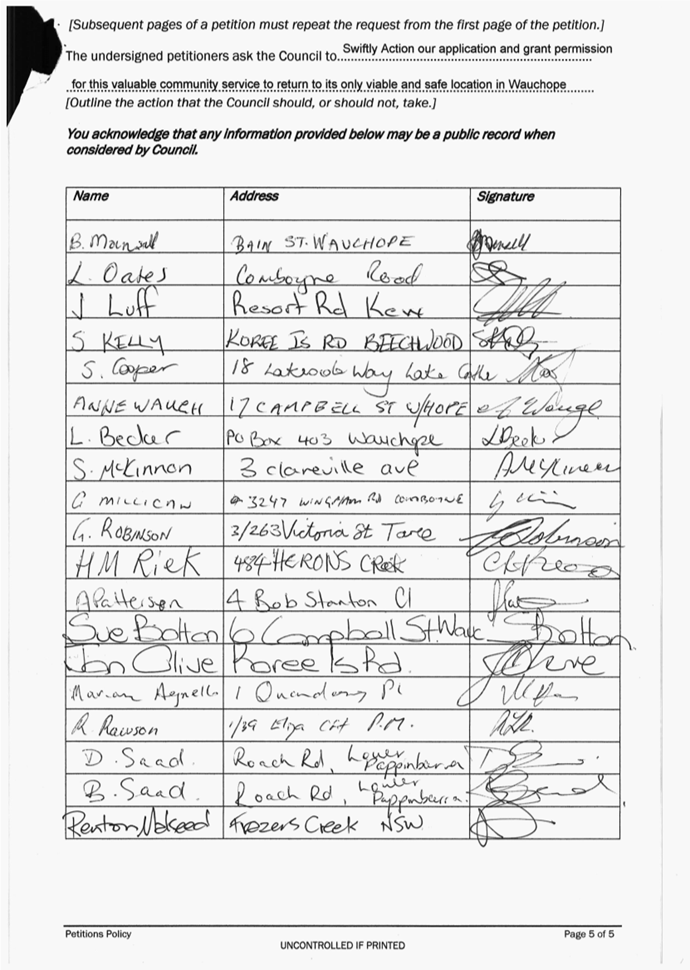 [Subsequent pages of a petition must repeat the request from the first page of the petition.]
The undersigned petitioners ask the Council to...Swiftly Action our application and grant permission
for this valuable community service to return to its only viable and safe location in Wauchope
[Outline the action that the Council should, or should not, take.]
You acknowledge that any information provided below may be a public record when
considered by Council.
Name Address Signature
B. BAIN ST. WAUCHOPE
L. Oates Comboyne Road
J Luff Resort Rd Kew
S KELLY KOREE IS RD BEECHWOOD
S. Cooper 18 Way Lake
ANNE WAUGH 17 CAMPBELL ST W/HOPE
L. Becker PO Box 403 Wauchope
S. McKinnon 3 clareville ave
G MILLICAN 3247 WINGHAM RD COMBOYNE
G. ROBINSON 3/263 Victoria St Taree Robinson
HM Riek 484 HERONS CREEK
A Patterson 4 Bob Stanton Cl
Sue Bolton 6 Campbell St. Wauc S Bolton
Jon Olive Koree Is Rd. J Olive
Marian 1 Pl
R Rawson 1/39 P.M.
D. Saad. Roach Rd, Lower Pappinbarra
B. Saad. Roach Rd, Lower Pappinbarra.
Renton Frazers Creek NSW
Petitions Policy Page 5 of 5
UNCONTROLLED IF PRINTED